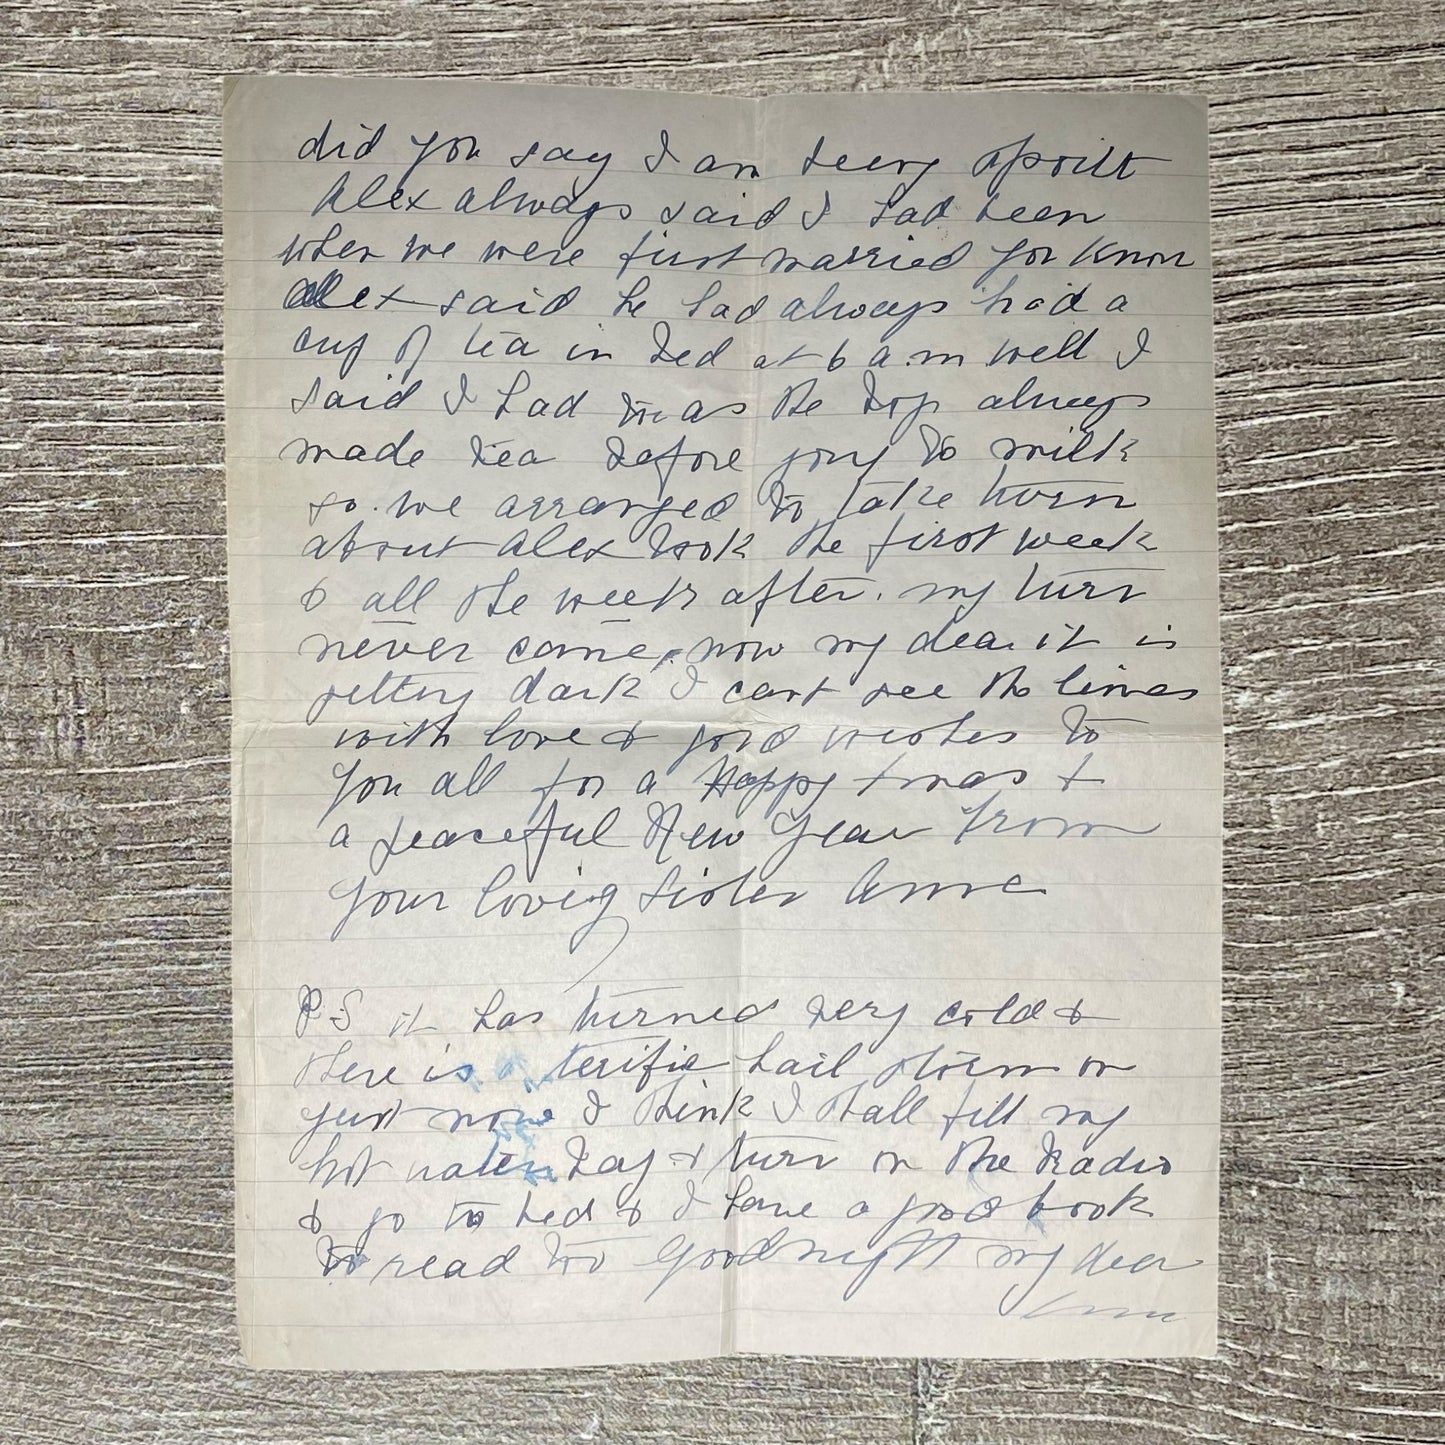 did you say I am being spoilt
Alex always said I had been
when we were first married you know
Alex said he had always had a
cup of tea in bed at 6 a.m well I
said I had too as the boys always
made tea before going to milk
so we arranged to take turn
about Alex took the first week
& all the weeks after. my turn
never came, now my dear it is
getting dark I cant see the lines
with love & good wishes to
you all for a Happy Xmas &
a peaceful New Year from
your loving sister Anne
P.S it has turned very cold &
there is a terific hail storm on
just now I think I shall fill my
hot water bag & turn on the radio
& go to bed & I have a good book
to read too Goodnight my dear
Anne